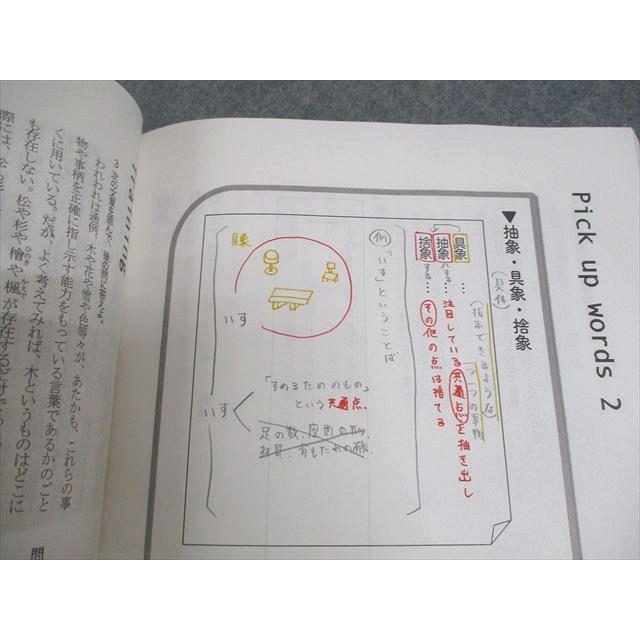 Pick up words 2
▼抽象・具象・捨象
(具体)
具象…(指示できるような)
一つ一つの事物
抽象する…注目している共通点を抽き出し
捨象する…その他の点は捨てる
例「いす」ということば
具象
いす
いす
「すわるためのもの」
という共通点、
足の数、座面の形、
材質、
3 次の文章を読んで、後の問に答えよ。
われわれは通例、木や花や雪や色等々が、あたかも、これらの事
物や事柄を正確に指し示す能力をもっている言葉であるかのごと
くに用いている。だが、よく考えてみれば、木というものはどこに
も存在しない。松や杉や檜や楓が存在するだけで
ひのき
かえで
問